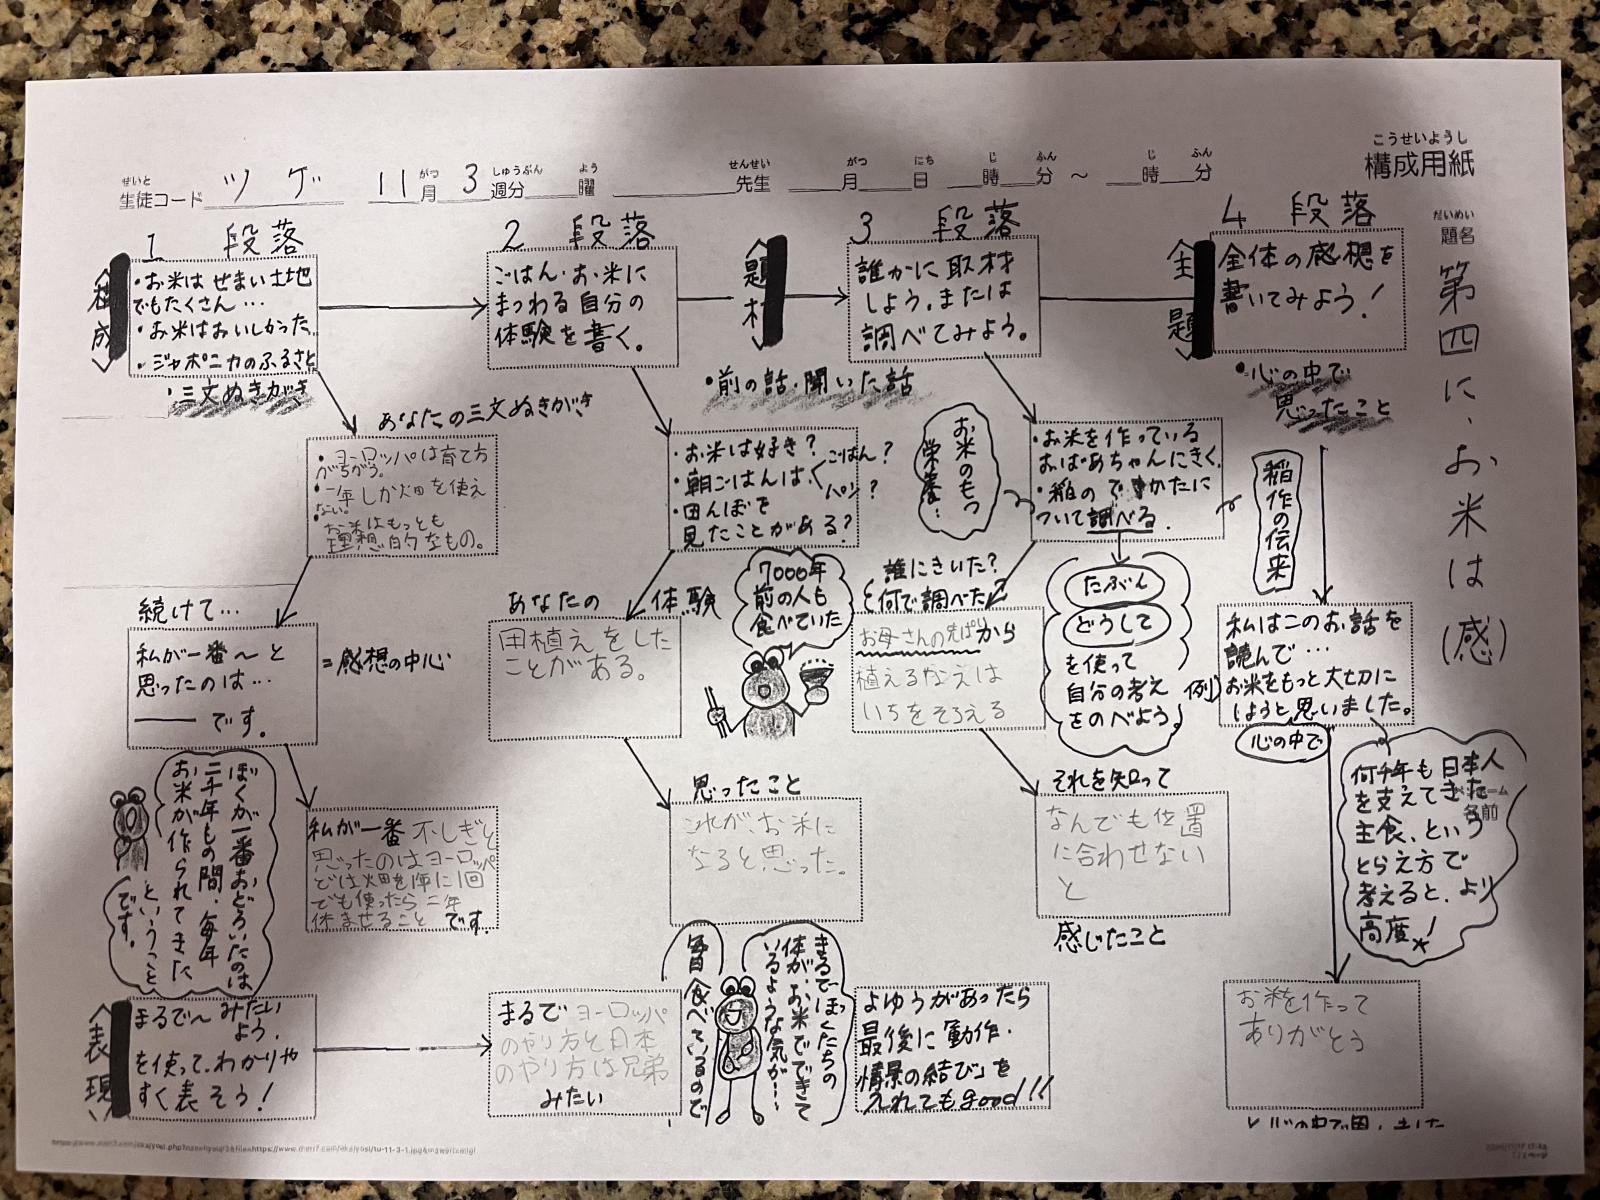 構成用紙
こうせいようし
せいと
生徒コード ツゲ 11月3週分 曜 先生 月 日 時 分 ～ 時 分
がつ しゅうぶん よう せんせい がつ にち じ ふん じ ふん
だいめい
題名
第四に、お米は(感)
1 段落
・お米はせまい土地
でもたくさん…
・お米はおいしかった
・ジャポニカのふるさと
・三文ぬきがき
あなたの三文ぬきがき
・ヨーロッパは育て方
がちがう。
・一年しか畑を使え
ない。
・お米はもっとも
理想的なもの。
続けて…
私が一番～と
思ったのは…
――です。
=感想の中心
ぼくが一番おどろいたのは
二千年もの間、毎年
お米が作られてきた
ということ
です。
私が一番 不しぎと
思ったのはヨーロッパ
では畑を1年に1回
でも使ったら二年
休ませること です。
〈表現〉
まるで～みたい
よう。
を使って、わかりや
すく表そう!
2 段落
ごはん・お米に
まつわる自分の
体験を書く。
・お米は好き?
・朝ごはんは、ごはん?
パン?
・田んぼを
見たことがある?
あなたの 体験
田植えをした
ことがある。
7000年
前の人も
食べていた
思ったこと
これが、お米に
なると思った。
まるで ヨーロッパ
のやり方と日本
のやり方は兄弟
みたい
毎日食べているので
まるでぼくたちの
体が、お米でできて
いるような気が…
〈題材〉
3 段落
誰かに取材
しよう。または
調べてみよう。
・前の話・聞いた話
お米のもつ
栄養…
・お米を作っている
おばあちゃんにきく。
・稲のできかたに
ついて調べる。
誰にきいた?
何で調べた?
お母さんの から
植えるなえは
いちをそろえる
たぶん
どうして
を使って
自分の考え
をのべよう。
それを知って
なんでも位置
に合わせない
と
感じたこと
よゆうがあったら
最後に「動作・
情景の結び」を
入れてもgood!!
〈主題〉
4 段落
全体の感想を
書いてみよう!
・心の中で
思ったこと
稲作の伝来
例)
私はこのお話を
読んで…
お米をもっと大切に
しようと思いました。
心の中で
何千年も日本人
を支えてきた
主食、という
とらえ方で
考えると、より
高度!
名前
お米を作って
ありがとう
と心の中で思いました